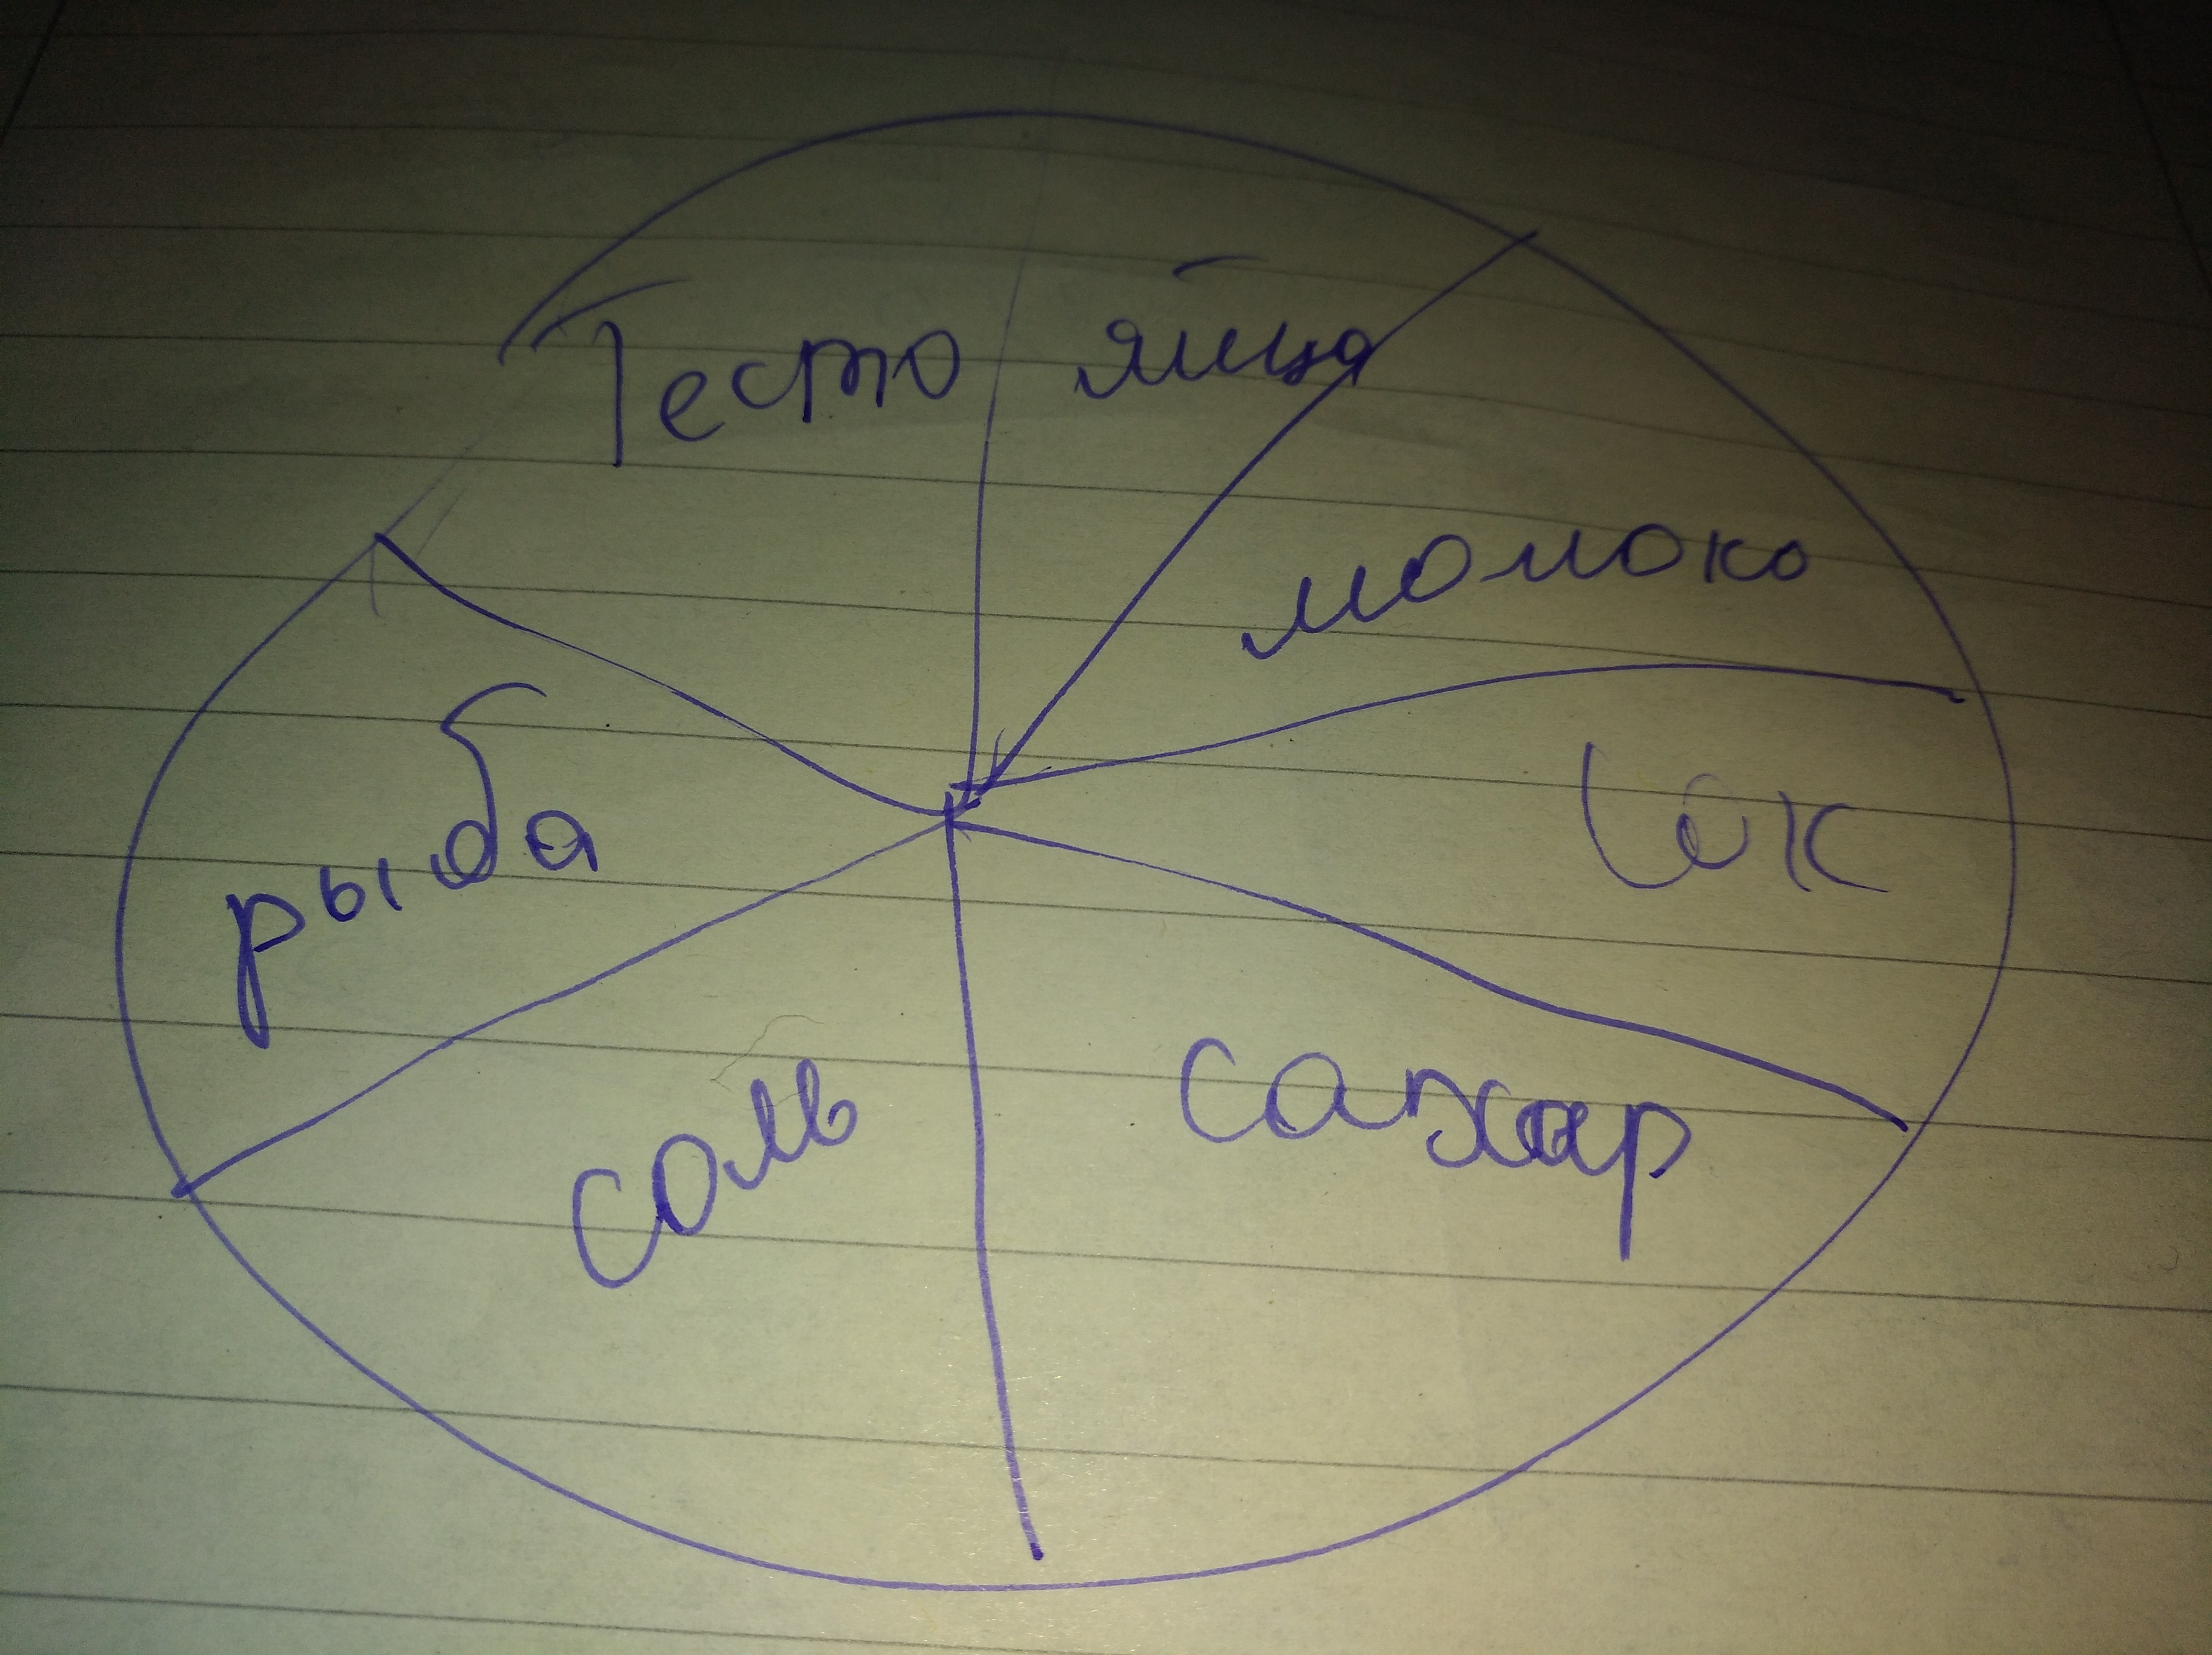 Тесто яйца
молоко
сок
рыба
сахар
соль